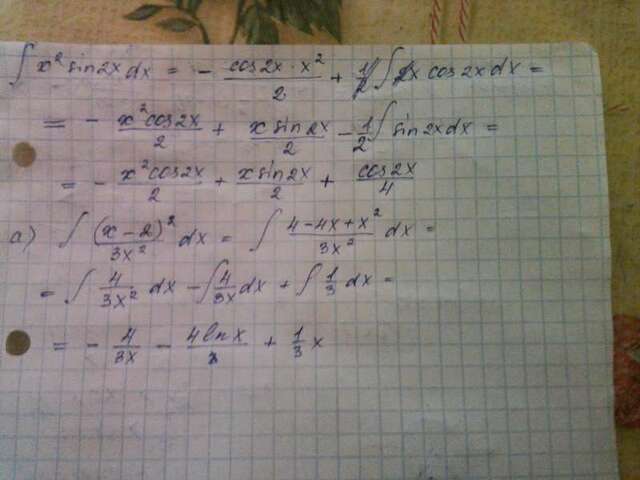 ∫ x² sin2x dx = - cos2x · x² / 2 + 1/2 ∫ 2x cos2x dx =
= - x² cos2x / 2 + x sin2x / 2 - 1/2 ∫ sin2x dx =
= - x² cos2x / 2 + x sin2x / 2 + cos2x / 4
a) ∫ (x - 2)² / 3x² dx = ∫ 4 - 4x + x² / 3x² dx =
= ∫ 4 / 3x² dx - ∫ 4 / 3x dx + ∫ 1/3 dx =
= - 4 / 3x - 4 ln x / 3 + 1/3 x